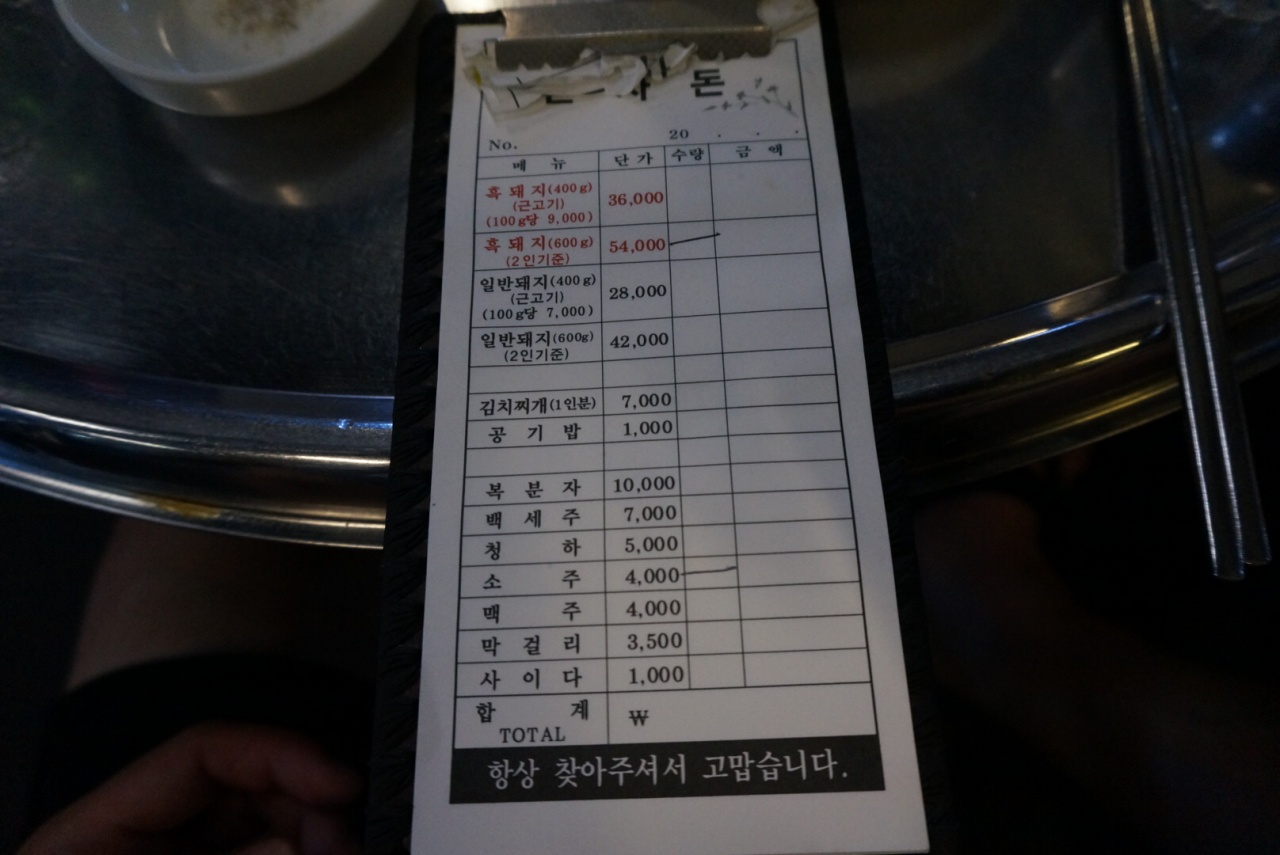 돈
No. 20 . . .
메 뉴 단 가 수량 금 액
흑 돼 지(400g)
(근고기)
(100g당 9,000) 36,000
흑 돼 지(600g)
(2인기준) 54,000
일반돼지(400g)
(근고기)
(100g당 7,000) 28,000
일반돼지(600g)
(2인기준) 42,000
김치찌개(1인분) 7,000
공 기 밥 1,000
복 분 자 10,000
백 세 주 7,000
청 하 5,000
소 주 4,000
맥 주 4,000
막 걸 리 3,500
사 이 다 1,000
합 계
TOTAL ₩
항상 찾아주셔서 고맙습니다.